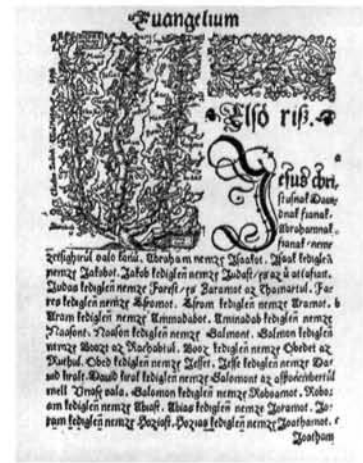 Euangelium
Elsö riß.
Jesus Chri-
stusnak Dauid-
nak fianak.
Abrahamnak
fianak neme
zetsighirül való könü. Abraham nemzé Isaakot. Isaak kediglen
nemzé Jakobot. Jakob kediglen nemzé Judast es az ü attafiait.
Judas kediglen nemzé Farest es Zaramot az Thamartul. Fa-
res kediglen nemzé Esromot. Esrom kediglen nemzé Aramot.
Aram kediglen nemzé Aminadabot. Aminadab kediglen nemzé
Naasont. Naason kediglen nemzé Salmont. Salmon kediglen
nemzé Boozt az Rachabtul. Booz kediglen nemzé Obedet az
Ruthul. Obed kediglen nemzé Jesset. Jesse kediglen nemzé Da-
uid kiralt. Dauid kiral kediglen nemzé Salomont az
mell Uriasé vala. Salomon kediglen nemzé Roboamot. Robo-
am kediglen nemzé Abiast. Abias kediglen nemzé
kediglen nemzé Hoziast. Hozias kediglen nemzé Joathamot.
Joatham